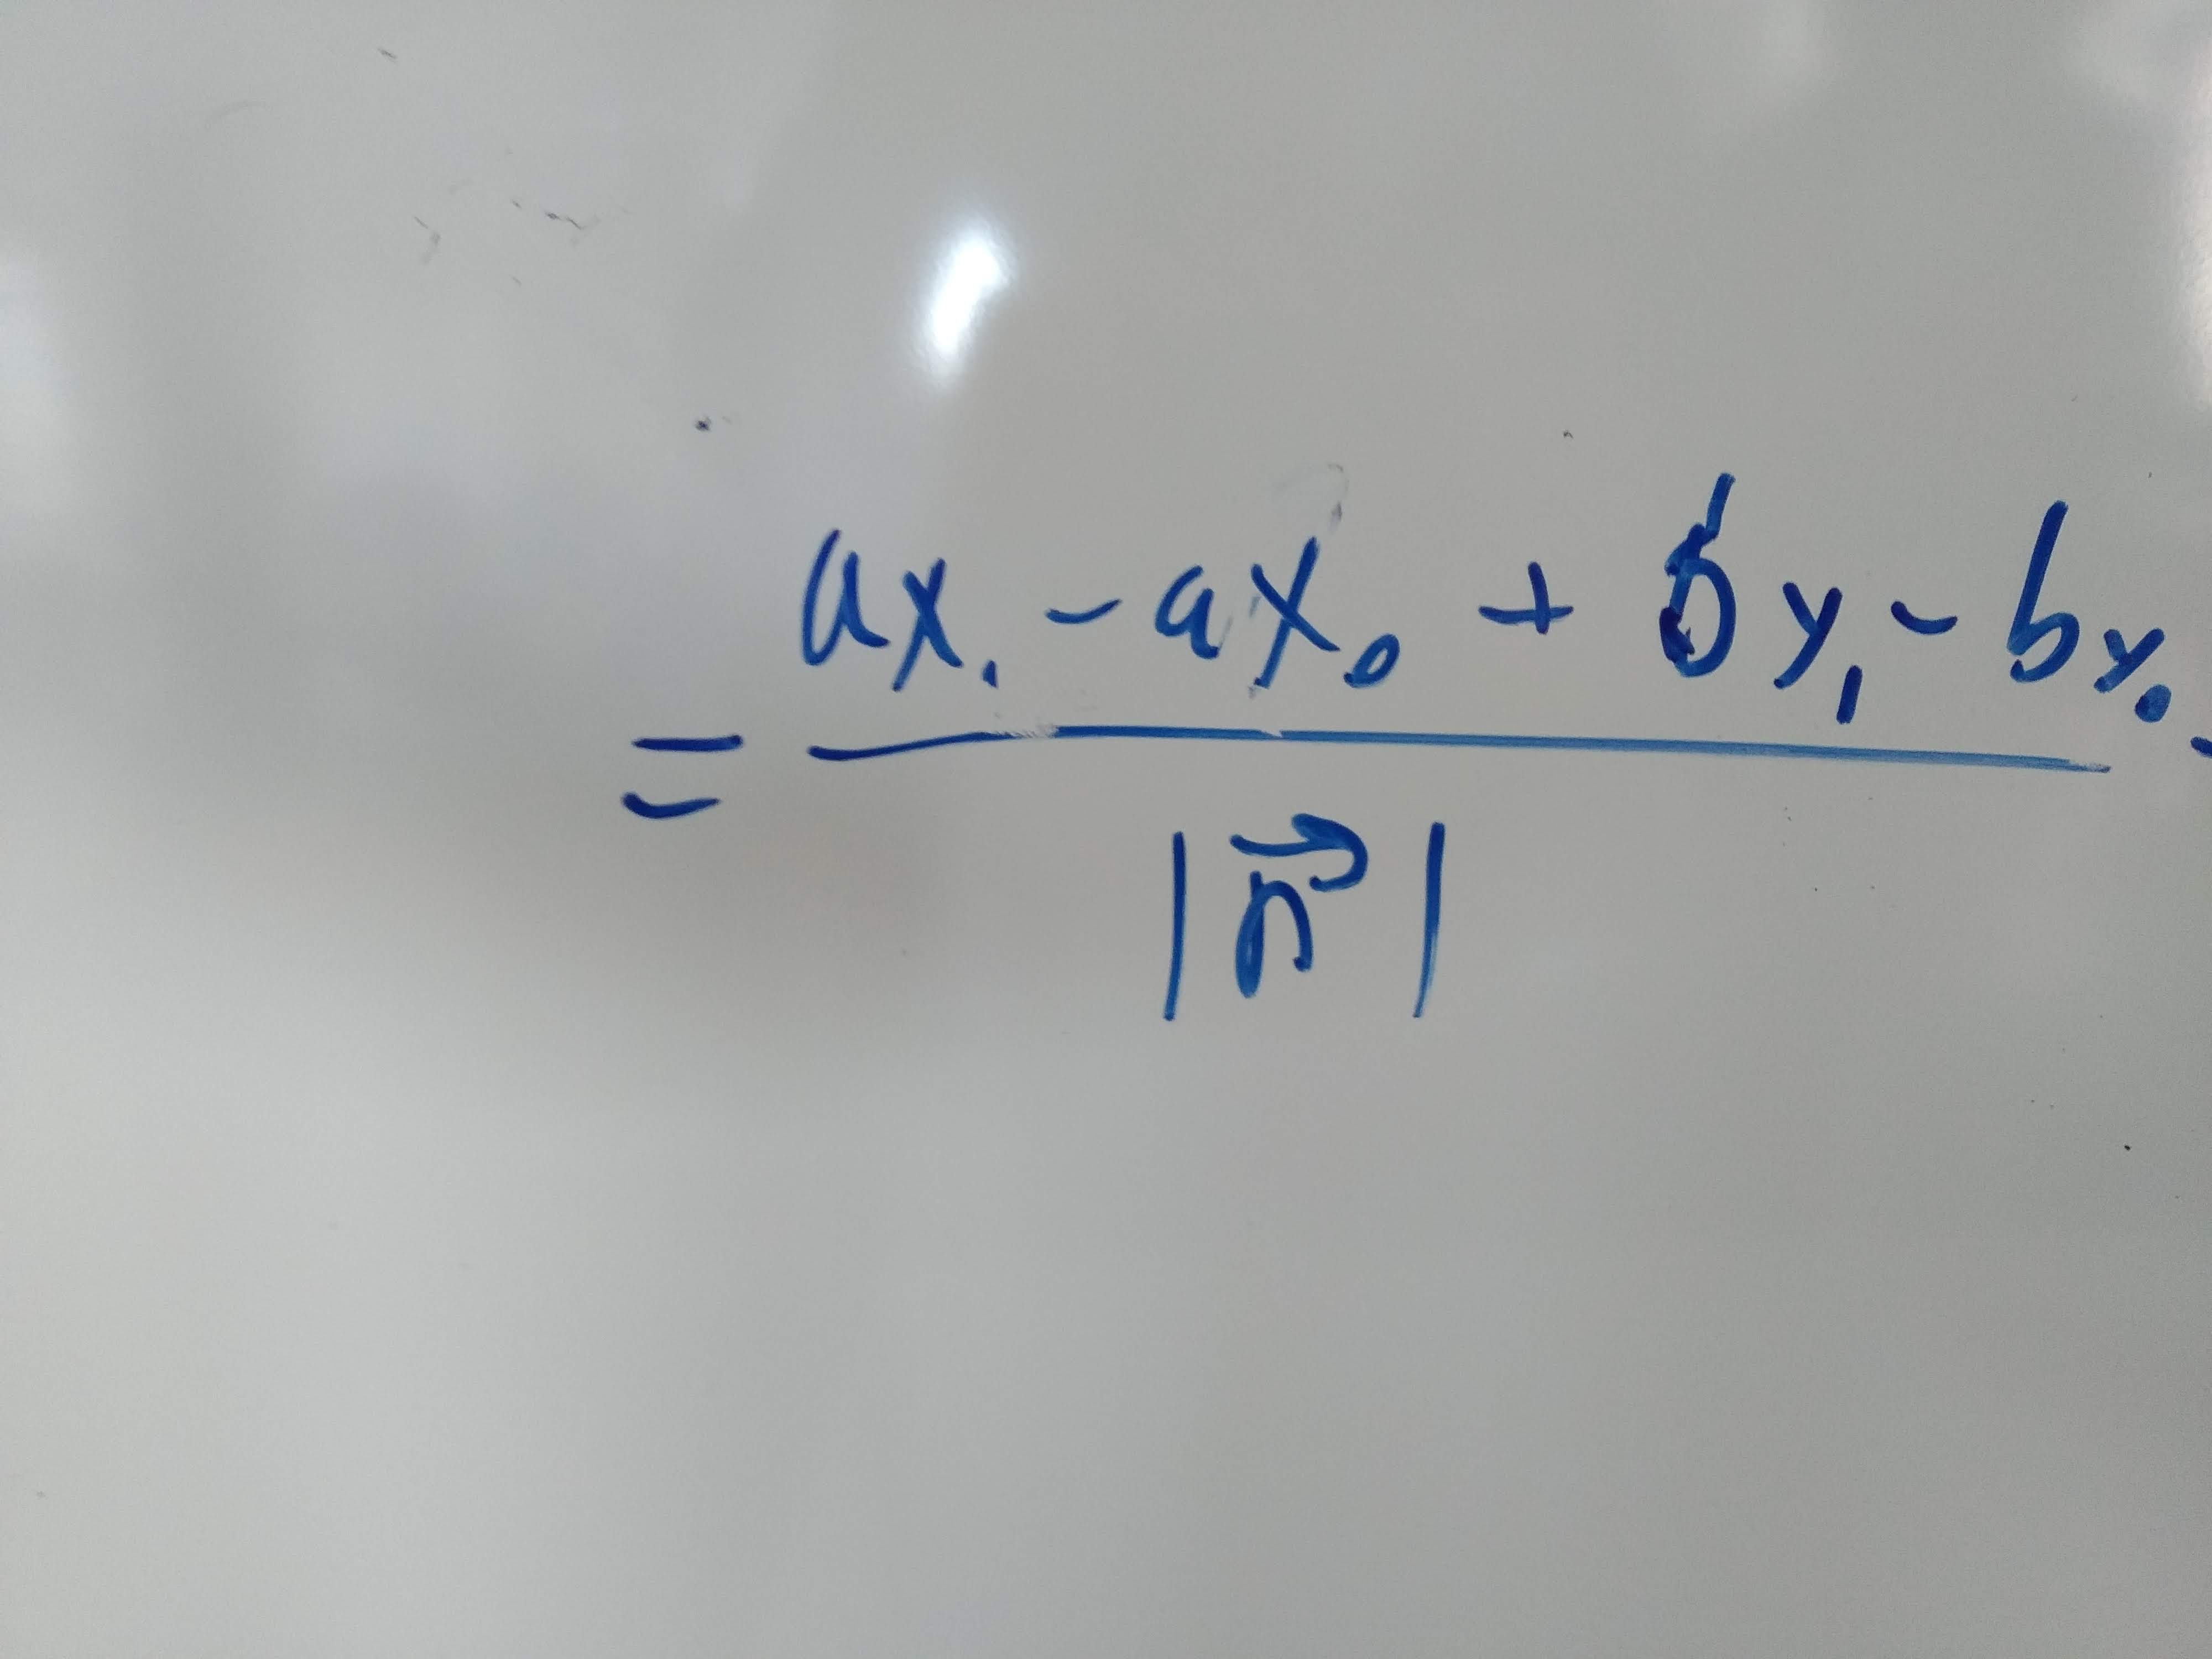 = ax₁ - ax₀ + by₁ - by₀
|n⃗|